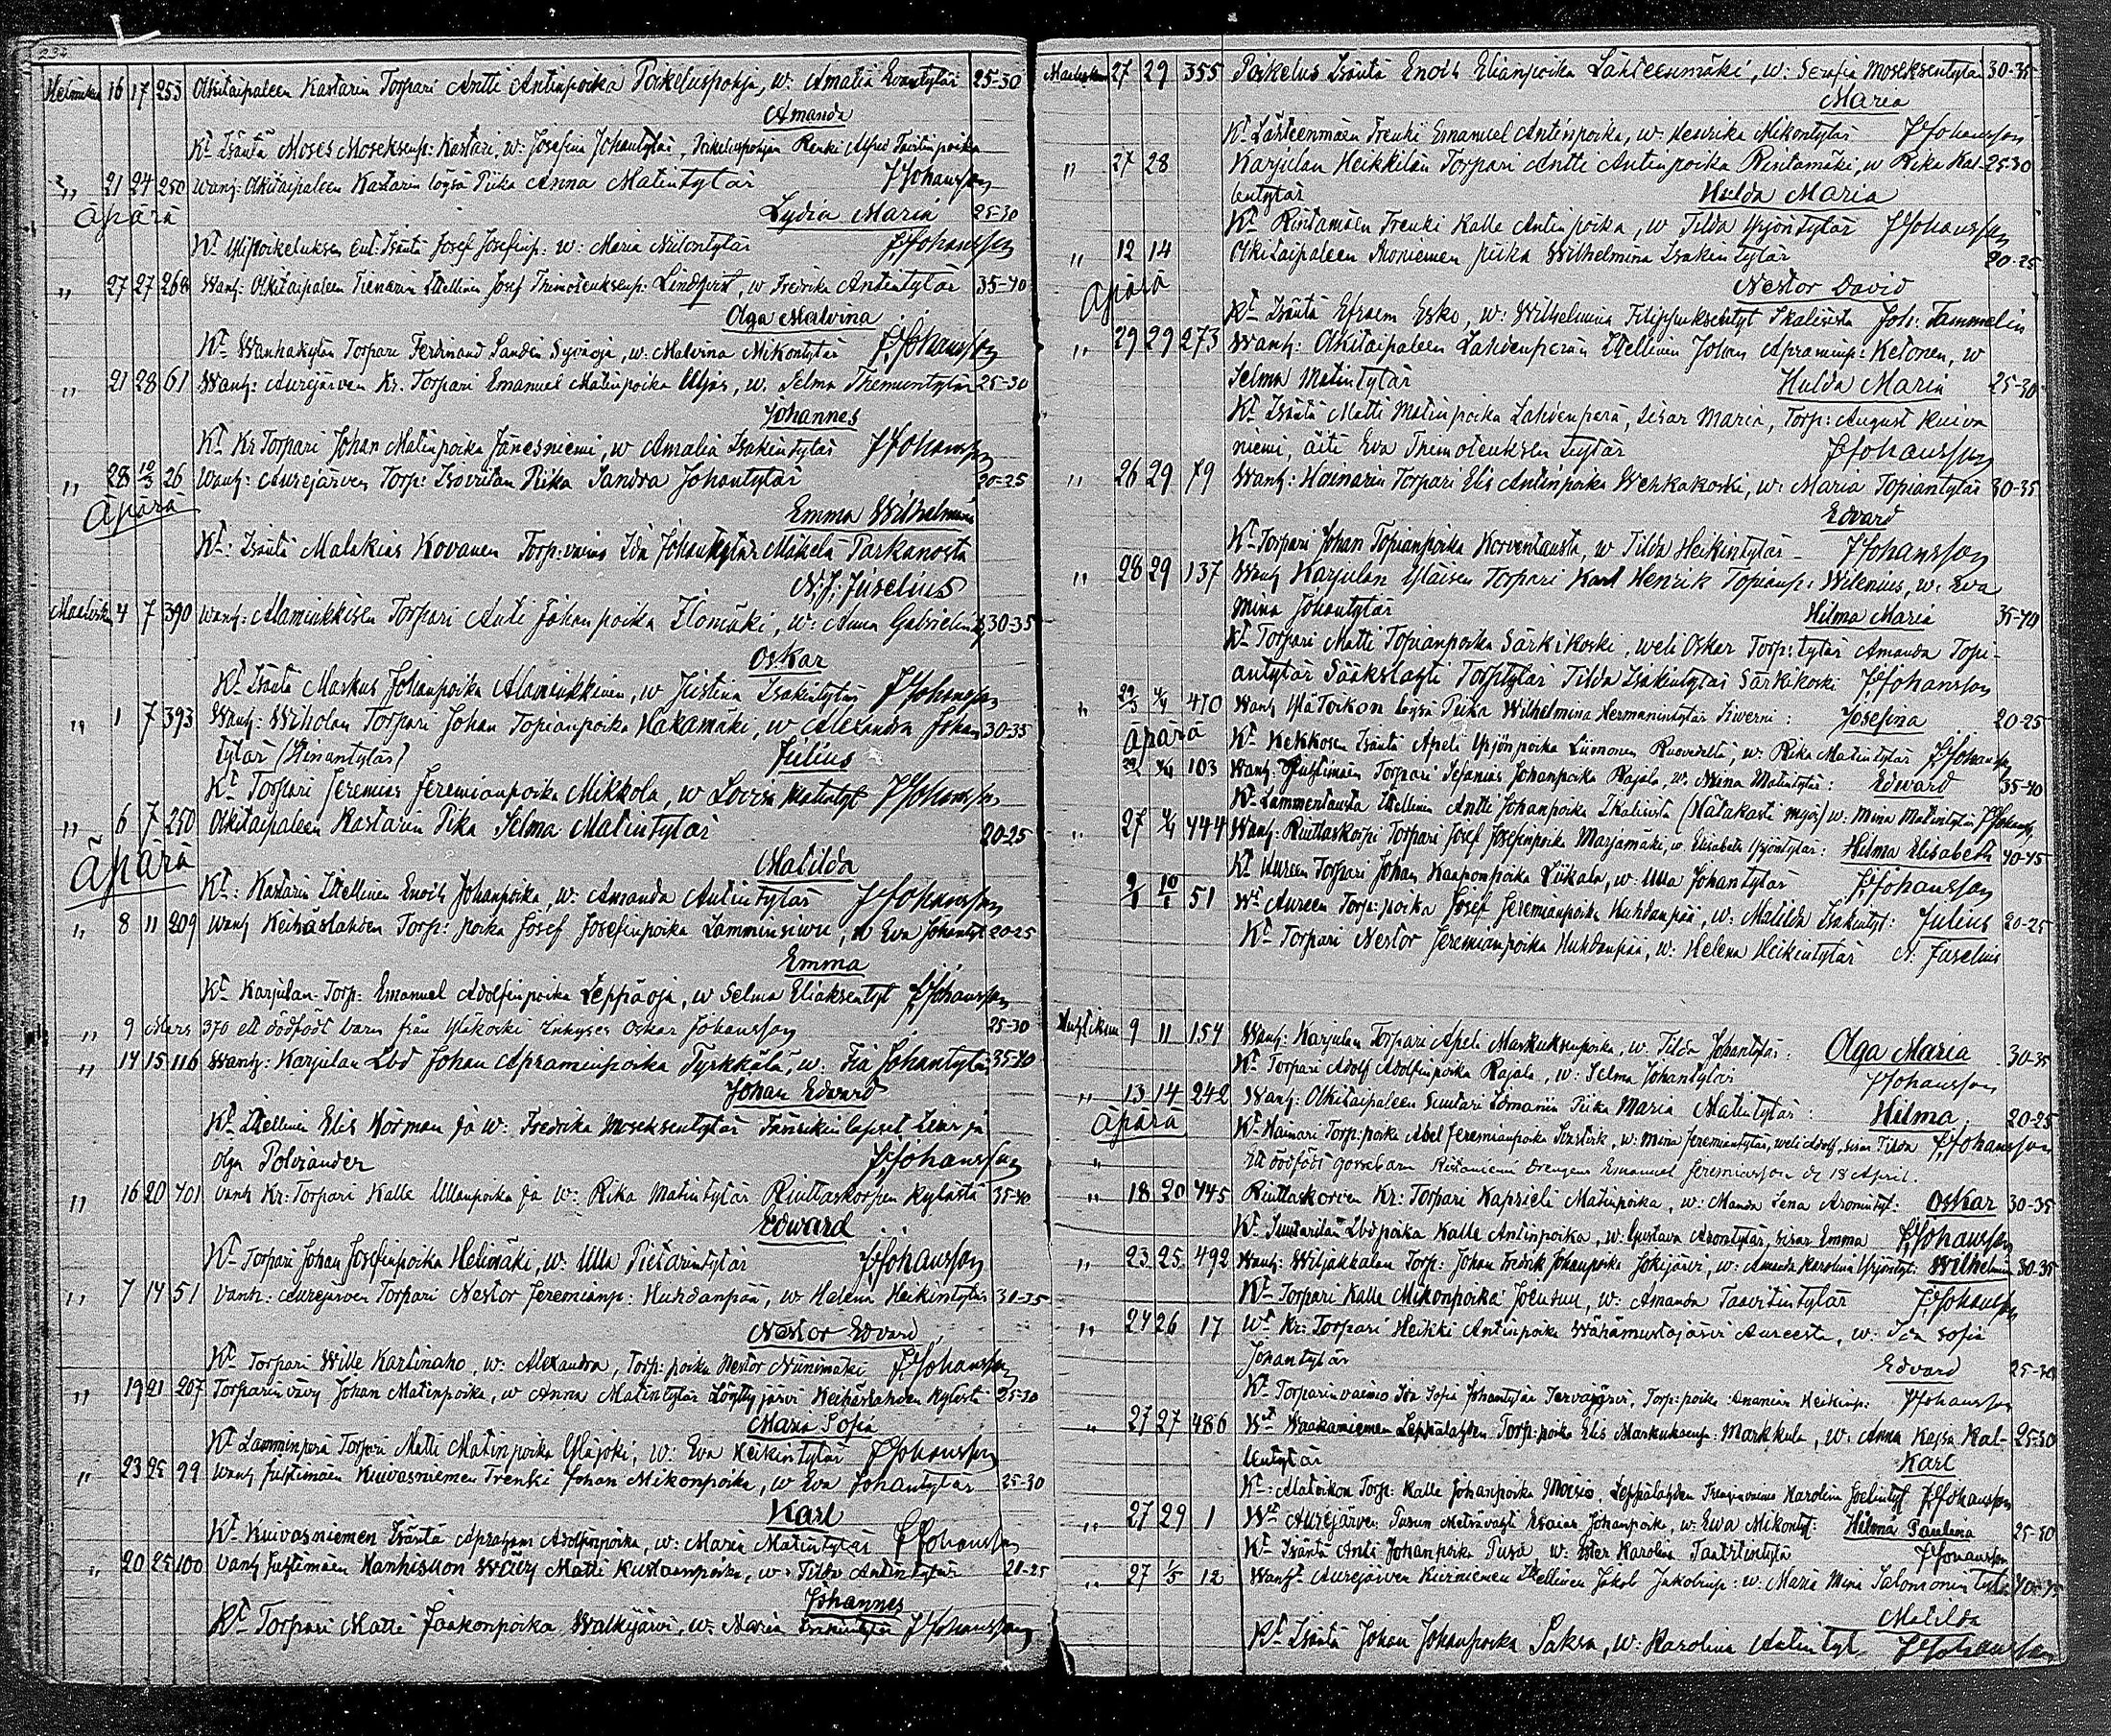 232
Helmikuu 16 17 253 Olkitaipaleen Kastarin Torpari Antti Antinpoika Poikeluspohja, w: Amalia Evantytär 25-30
Amanda
Kt Isäntä Moses Moseksenp: Kastari, w: Josefina Johantytär, Poikeluspohjan Renki Alfred
,, 21 24 250 Wanh: Olkitaipaleen Kastarin löysä Piika Anna Matintytär JJohansson
Äpärä Lydia Maria 25-30
Kt Isäntä Josef Josefinp: w: Maria Niilontytär JJohansson
,, 27 27 268 Wanh: Olkitaipaleen Tienarin Itsellinen Josef Thimoteuksenp: Lindqvist, w Fredrika Antintytär 35-40
Olga Malvina
Kt Wanhakylän Torpari Ferdinand Sandin Syväoja, w: Malvina Mikontytär JJohansson
,, 21 28 61 Wanh: Aurejärven Kr. Torpari Emanuel Matinpoika, w. Selma 25-30
Johannes
Kt Kr Torpari Johan Matinpoika Jänesniemi, w Amalia Isakintytär JJohansson
,, 28 10/3 26 Wanh: Aurejärven Torp: Piika Sandra Johantytär 20-25
Äpärä Emma Wilhelmina
Kt: Isäntä Malakias Kovanen Torp: vaimo Ida Johantytär Mäkelä Parkanosta
N. J. Juselius
Maalisku 4 7 390 Wanh: Alaminkkisen Torpari Anti Johanpoika Ilomäki, w: Anna 30-35
Oskar
Kt Isäntä Markus Johanpoika Alaminkkinen, w Justina Isakintytär JJohansson
,, 1 7 393 Wanh: Wiholan Torpari Johan Topianpoika Hakamäki, w Alexandra Johan 30-35
tytär Julius
Kt Torpari Jeremias Jeremianpoika Mikkola, w Lovisa Matintyt JJohansson
,, 6 7 250 Olkitaipaleen Kastarin Piika Selma Matintytär 20-25
Äpärä Matilda
Kt: Kastarin Itsellinen Enoch Johanpoika, w: Amanda Antintytär JJohansson
,, 8 11 209 Wanh Keihäslahden Torp: poika Josef Josefinpoika Lamminsivu, w Eva Johantyt 20-25
Emma
Kt Karjulan Torp: Emanuel Adolfinpoika Leppäoja, w Selma Eliaksentyt JJohansson
,, 9 Mars 370 ett dödfödt barn från Yläkoski Oskar Johansson 25-30
,, 14 15 116 Wanh: Karjulan Lbd Johan Apraminpoika Tyrkkälä, w: Fia Johantytär 35-40
Johan Edvard
Kt Itsellinen Elis Hörman ja w: Fredrika Moseksentytär
Olga Polviander JJohansson
,, 16 20 401 Vanh Kr: Torpari Kalle Ullanpoika ja w: Rika Matintytär Riuttaskorpen kylästä 35-40
Edward
Kt Torpari Johan Josefinpoika Helimäki, w: Ulla Pietarintytär JJohansson
,, 7 14 51 Vanh: Aurejärven Torpari Nestor Jeremianp: Huhdanpää, w Helena Heikintytär 30-35
Nestor Edvard
Kt Torpari Wille Kartinaho, w: Alexandra, Torp: poika Nestor Niinimäki JJohansson
,, 19 21 207 Torparin vävy Johan Matinpoika, w Anna Matintytär Keihäslahden kylästä 25-30
Maria Sofia
Kt Lamminperä Torpari Matti Matinpoika Yläjoki, w: Eva Heikintytär JJohansson
,, 23 25 99 Wanh Juhtimäen Kuivasniemen Trenki Johan Mikonpoika, w Eva Johantytär 25-30
Karl
Kt Kuivasniemen Isäntä Apraham Adolfinpoika, w: Maria Matintytär JJohansson
,, 20 25 100 Vanh Juhtimäen Hanhisuon Wävy Matti Kustaanpoika, w: Tilda Antintytär 20-25
Johannes
Kt Torpari Matti Jaakonpoika Walkijärvi, w: Maria Isakintytär JJohansson
Maalisku 27 29 355 Poikelus Isäntä Enoch Elianpoika Lähteenmäki, w: Serafia Moseksentytär 30-35
Maria
Kt Lähteenmäen Trenki Emanuel Antinpoika, w: Hendrika Mikontytär JJohansson
,, 27 28 Karjulan Heikkilän Torpari Antti Antinpoika Rintamäki, w Rika Kal- 25-30
lentytär Hulda Maria
Kt Rintamäen Trenki Kalle Antinpoika, w Tilda Yrjöntytär JJohansson
,, 12 14 Olkitaipaleen Moniemen piika Wilhelmina Isakintytär 20-25
Äpärä Nestor David
Kt Isäntä Efraem Esko, w: Wilhelmina Filippuksentyt Ikalisista Joh: Tammelin
,, 29 29 273 Wanh: Olkitaipaleen Lahdenperän Itsellinen Johan Apraminp: Ketonen, w
Selma Matintytär Hulda Maria 25-30
Kt Isäntä Matti Matinpoika Lahdenperä, sisar Maria, Torp: August Kuiva
niemi, äiti Eva Thimoteuksen tytär JJohansson
,, 26 29 79 Wanh: Hainarin Torpari Elis Antinpoika Wehkakoski, w: Maria Topiantytär 30-35
Edvard
Kt Torpari Johan Topianpoika Korventausta, w Tilda Heikintytär JJohansson
,, 28 29 137 Wanh Karjulan Yläisen Torpari Karl Henrik Topianp: Wilenius, w: Eva
Mina Johantytär Hilma Maria 35-40
Kt Torpari Matti Topianpoika Särkikoski, weli Oskar Torp: tytär Amanda Topi-
antytär Sääkslahti Torptytär Tilda Isakintytär Särkikoski JJohansson
,, 29/3 4/4 470 Wanh Ylä Toikon löysä Piika Wilhelmina Hermanintytär Siverni: Josefina 20-25
Äpärä Kt Kekkosen Isäntä Apeli Yrjönpoika Liinonen Ruovedeltä, w: Rika Matintytär JJohansson
4/4 103 Wanh: Juhtimäen Torpari Sefanias Johanpoika Rajala, w: Miina Matintytär: Edward 35-40
Kt Lammentausta Itsellinen Antti Johanpoika Ikalisista w: Mina Matintytär JJohansson
,, 27 4/4 444 Wanh: Riuttaskorpi Torpari Josef Josefinpoika Marjamäki, w: Elisabeth Yrjöntytär: Hilma Elisabeth 40-45
Kt Kureen Torpari Johan Kaaponpoika Liikala, w: Ulla Johantytär JJohansson
51 Wt Aureen Torp: poika Josef Jeremianpoika Huhdanpää, w: Matilda Isakintyt: Julius 20-25
Kt Torpari Nestor Jeremianpoika Huhdanpää, w: Helena Heikintytär N: Juselius
Huhtikuu 9 11 154 Wanh: Karjulan Torpari Apeli Markuksenpoika, w. Tilda Johantytär: Olga Maria 30-35
Kt Torpari Adolf Adolfinpoika Rajala, w: Selma Johantytär JJohansson
,, 13 14 242 Wanh: Olkitaipaleen Suutari Lomanin Piika Maria Matintytär: Hilma 20-25
Äpärä Kt Hainari Torp: poika Abel Jeremianpoika, w: Mina Jeremiantytär, weli Adolf, sisar Tilda JJohansson
,, Ett dödfödt gossebarn Ristaniemi Drengens Emanuel Jeremiasson d: 18 April.
,, 18 20 445 Riuttaskorven Kr: Torpari Kaprieli Matinpoika, w: Manda Lena Aronintyt: Oskar 30-35
Kt Suutarilan Lbd poika Kalle Antinpoika, w: Gustava Arontytär, sisar Emma JJohansson
,, 23 25 492 Wanh: Wiljakkalan Torp: Johan Fredrik Johanpoika Jokijärvi, w: Amanda Karolina Yrjöntyt: Wilhelmina 30-35
Kt Torpari Kalle Mikonpoika Joensuu, w: Amanda Taavitintytär JJohansson
,, 24 26 17 Wt Kr: Torpari Heikki Antinpoika Wähämustajärvi Aureesta, w: Ida Sofia
Johantytär Edvard 25-30
Kt Torparin vaimo Ida Sofia Johantytär Tervajärvi, Torp: poika Ananias Heikinp: JJohansson
,, 27 27 486 Wt Waakaniemen Leppälahden Torp: poika Elis Markuksenp: Markkula, w: Anna Kajsa Kal- 25-30
lentytär Karl
Kt: Alatoikon Torp: Kalle Johanpoika Moisio, Leppälahden Karolina Joelintyt JJohansson
,, 27 29 1 Wt Aurejärven Pusun Metsävahti Esaias Johanpoika, w: Eva Mikontyt: Hilma Paulina 25-30
Kt Isäntä Anti Johanpoika Pusu, w: Ester Karolina Taavitintytär JJohansson
,, 27 1/5 12 Wanht Aurejärven Kurniemen Itsellinen Jakob Jakobinp: w: Maria Mina Salomonin tytär 40-45
Matilda
Kt Isäntä Johan Johanpoika Saksa, w: Karolina Antintyt JJohansson